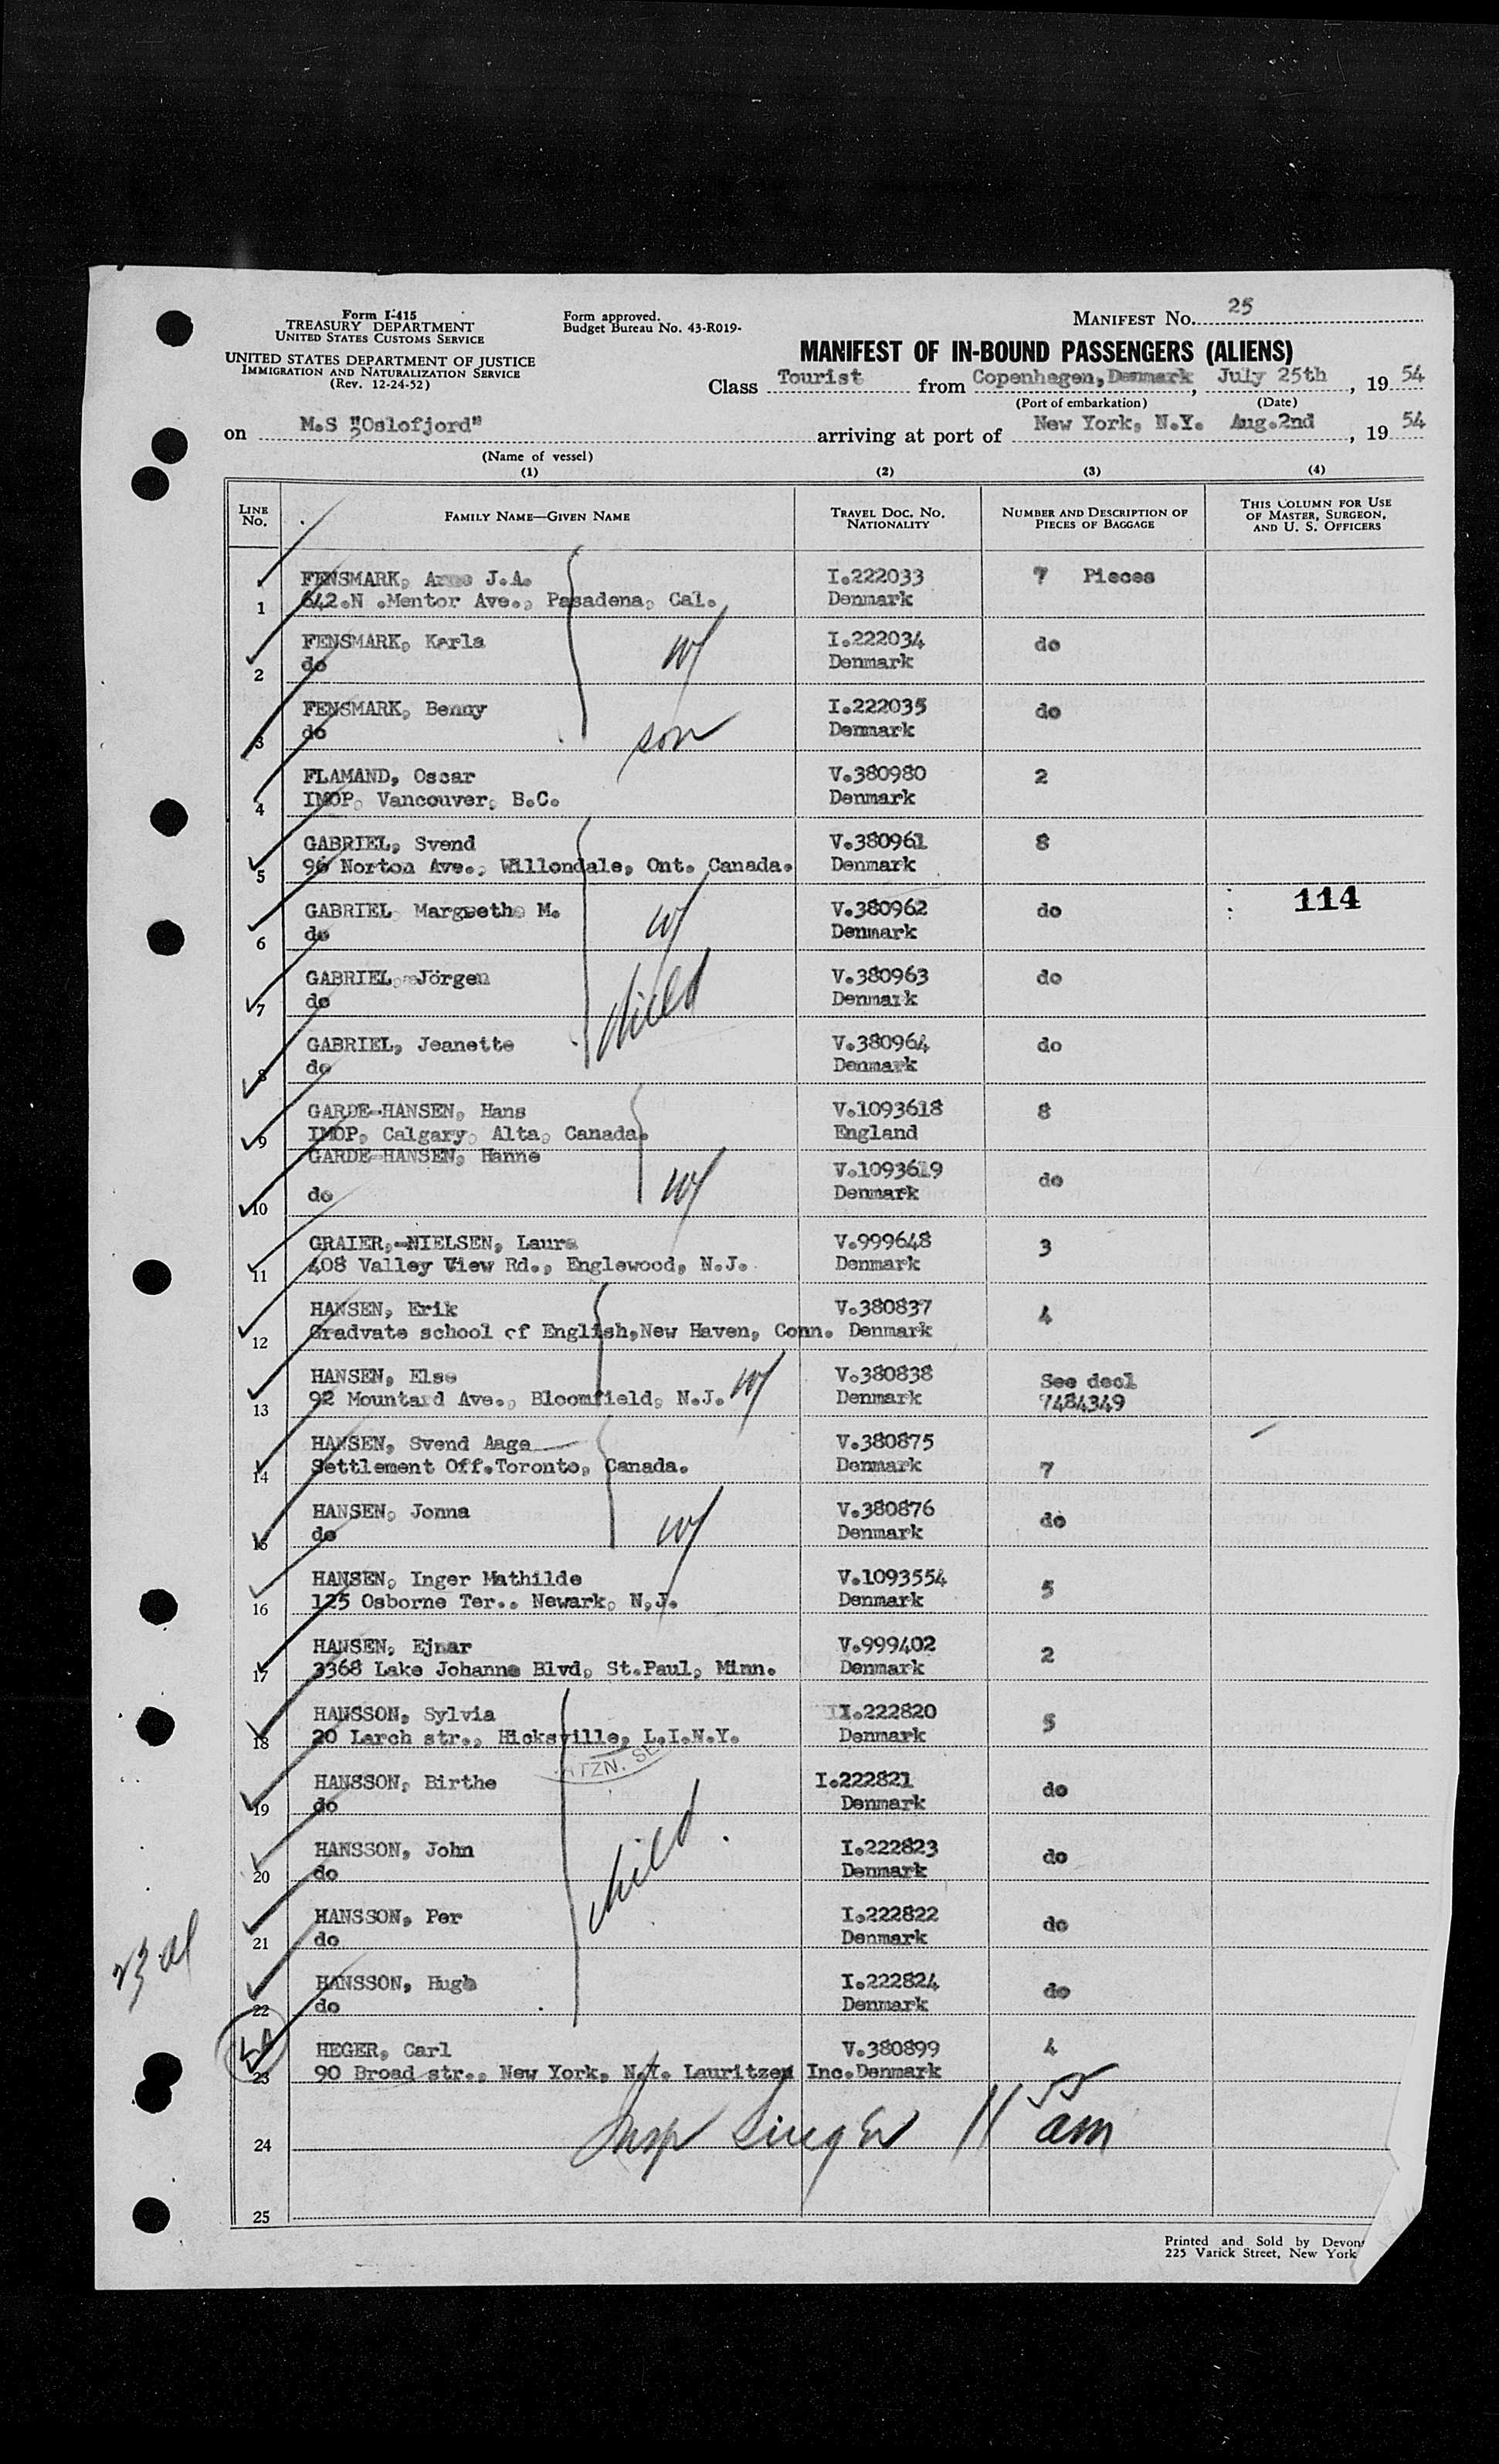 Form I-415
TREASURY DEPARTMENT
UNITED STATES CUSTOMS SERVICE
UNITED STATES DEPARTMENT OF JUSTICE
IMMIGRATION AND NATURALIZATION SERVICE
(Rev. 12-24-52)
Form approved.
Budget Bureau No. 43-R019-
MANIFEST No. 25
MANIFEST OF IN-BOUND PASSENGERS (ALIENS)
Class Tourist from Copenhagen, Denmark, July 25th, 19 54
(Port of embarkation) (Date)
on M.S "Oslofjord" arriving at port of New York, N.Y. Aug.2nd, 19 54
(Name of vessel)
(1) (2) (3) (4)
LINE No. FAMILY NAME—GIVEN NAME TRAVEL DOC. NO. NATIONALITY NUMBER AND DESCRIPTION OF PIECES OF BAGGAGE THIS COLUMN FOR USE OF MASTER, SURGEON, AND U. S. OFFICERS
FENSMARK, Arne J.A. I.222033 7 Pieces
1 642.N .Mentor Ave., Pasadena, Cal. Denmark
FENSMARK, Karla w/ I.222034 do
2 do Denmark
FENSMARK, Benny I.222035 do
3 do son Denmark
FLAMAND, Oscar V.380980 2
4 IMOP, Vancouver, B.C. Denmark
GABRIEL, Svend V.380961 8
5 96 Norton Ave., Willondale, Ont. Canada. Denmark
GABRIEL Margrethe M. w/ V.380962 do 114
6 do Denmark
GABRIEL, Jörgen V.380963 do
7 do child Denmark
GABRIEL, Jeanette V.380964 do
8 do Denmark
GARDE-HANSEN, Hans V.1093618 8
9 IMOP, Calgary, Alta, Canada. England
GARDE-HANSEN, Hanne V.1093619 do
10 do w/ Denmark
GRAIER,-NIELSEN, Laura V.999648 3
11 408 Valley View Rd., Englewood, N.J. Denmark
HANSEN, Erik V.380837 4
12 Gradvate school of English,New Haven, Conn. Denmark
HANSEN, Else w/ V.380838 See decl
13 92 Mountard Ave., Bloomfield, N.J. Denmark 7484349
HANSEN, Svend Aage V.380875
14 Settlement Off.Toronto, Canada. Denmark 7
HANSEN, Jonna w/ V.380876 do
15 do Denmark
HANSEN, Inger Mathilde V.1093554 5
16 125 Osborne Ter.. Newark, N.J. Denmark
HANSEN, Ejnar V.999402 2
17 3368 Lake Johanne Blvd, St.Paul, Minn. Denmark
HANSSON, Sylvia I.222820 5
18 20 Larch str., Hicksville, L.I.N.Y. Denmark
HANSSON, Birthe I.222821 do
19 do Denmark
HANSSON, John I.222823 do
20 do child Denmark
HANSSON, Per I.222822 do
21 do Denmark
HANSSON, Hugh I.222824 do
22 do Denmark
HEGER, Carl V.380899 4
23 90 Broad str., New York, N.Y. Lauritzen Inc.Denmark
24 Insp Singer 11 55 am
25
Printed and Sold by
225 Varick Street, New York